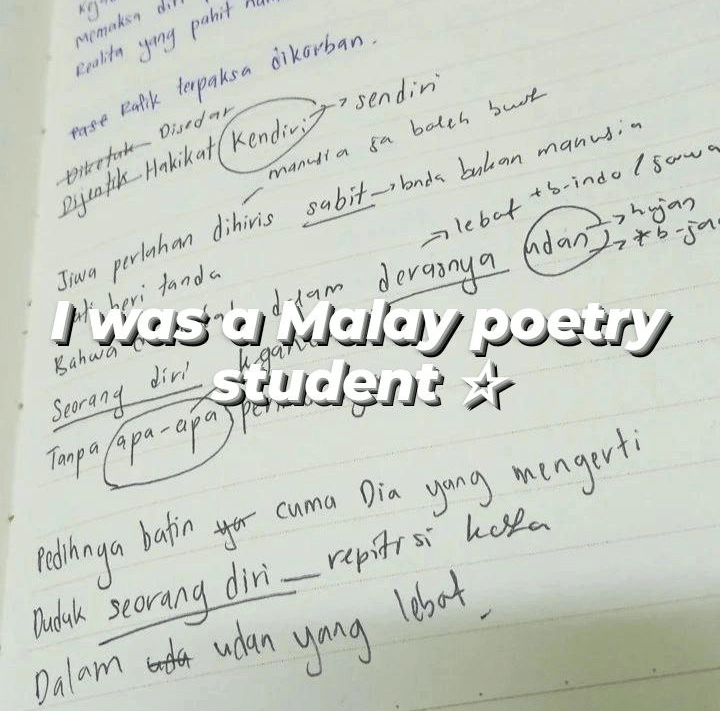 Memaksa diri
Realita yang pahit
terpaksa dikorban.
Disedar
Hakikat Kendiri → sendiri
manusia sa boleh buat
Jiwa perlahan dihiris sabit → bnda bukan manusia
beri tanda
→ lebat *b-indo / Jawa
Bahwa dalam derasnya udan → hujan
→ *b-ja
Seorang diri
Tanpa apa-apa
I was a Malay poetry
student ☆
Pedihnya batin cuma Dia yang mengerti
Duduk seorang diri — repitisi kata
Dalam udan yang lebat.